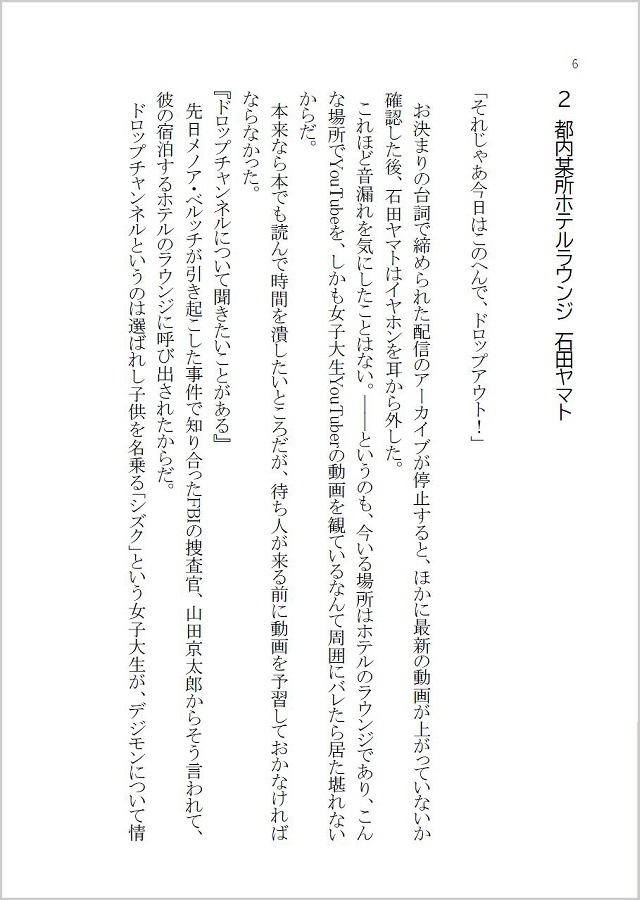 6
2　都内某所ホテルラウンジ　石田ヤマト
「それじゃあ今日はこのへんで、ドロップアウト！」
お決まりの台詞で締められた配信のアーカイブが停止すると、ほかに最新の動画が上がっていないか
確認した後、石田ヤマトはイヤホンを耳から外した。
これほど音漏れを気にしたことはない。――というのも、今いる場所はホテルのラウンジであり、こん
な場所でYouTubeを、しかも女子大生YouTuberの動画を観ているなんて周囲にバレたら居た堪れない
からだ。
本来なら本でも読んで時間を潰したいところだが、待ち人が来る前に動画を予習しておかなければ
ならなかった。
『ドロップチャンネルについて聞きたいことがある』
先日メノア・ベルッチが引き起こした事件で知り合ったFBIの捜査官、山田京太郎からそう言われて、
彼の宿泊するホテルのラウンジに呼び出されたからだ。
ドロップチャンネルというのは選ばれし子供を名乗る「シズク」という女子大生が、デジモンについて情